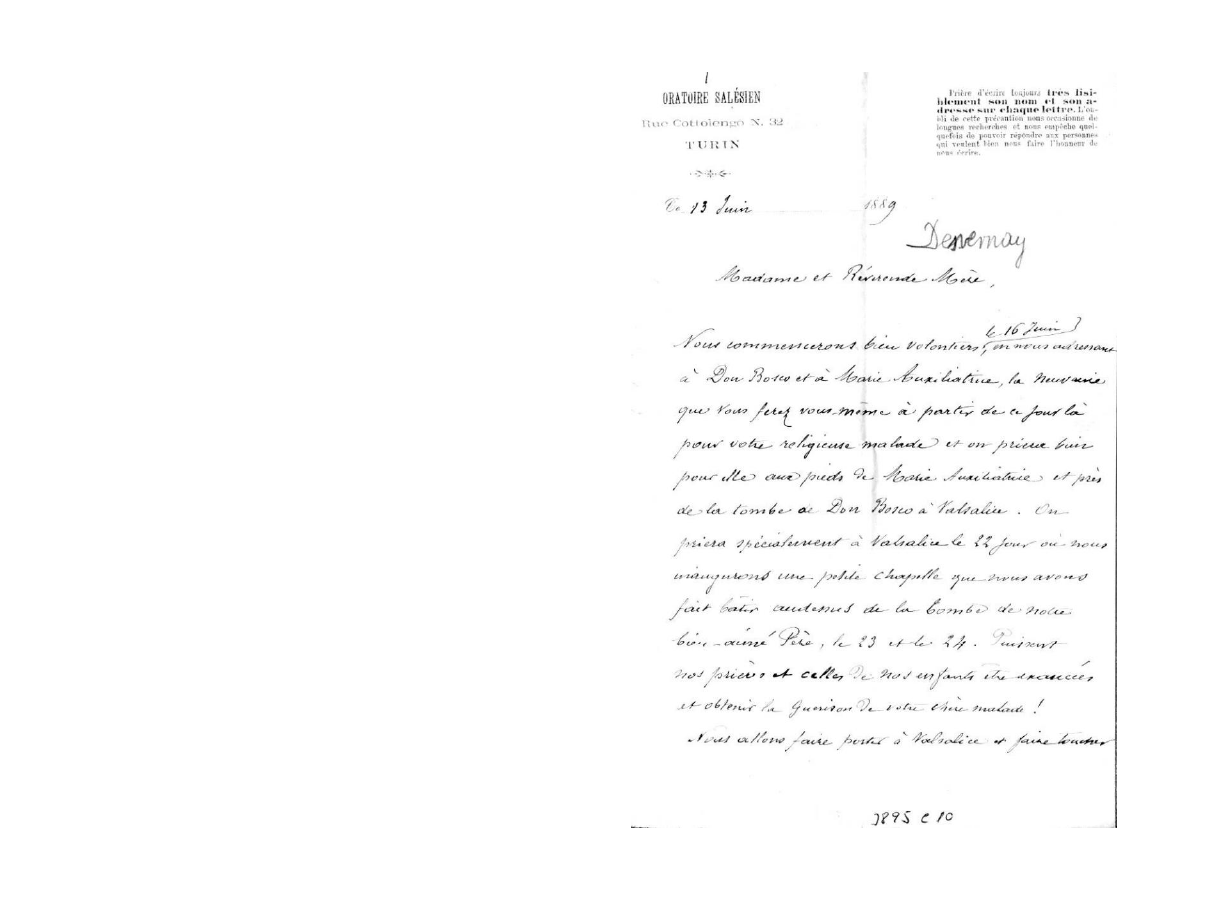 ORATOIRE SALÉSIEN
Rue Cottolengo N. 32
TURIN
Prière d'écrire toujours très lisi-
blement son nom et son a-
dresse sur chaque lettre. L'ou-
bli de cette précaution nous occasionne de
longues recherches et nous empêche quel-
quefois de pouvoir répondre aux personnes
qui veulent bien nous faire l'honneur de
nous écrire.
Ce 13 Juin 1889
Madame et Révérende Mère,
le 16 Juin
Nous commencerons bien volontiers, en nous adressant
à Don Bosco et à Marie Auxiliatrice, la neuvaine
que vous ferez vous-même à partir de ce jour là
pour votre religieuse malade et on priera bien
pour elle aux pieds de Marie Auxiliatrice et près
de la tombe de Don Bosco à Valsalice. On
priera spécialement à Valsalice le 22 jour où nous
inaugurons une petite chapelle que nous avons
fait bâtir audessus de la tombe de notre
bien-aimé Père, le 23 et le 24. Puissent
nos prières et celles de nos enfants être exaucées
et obtenir la guérison de votre chère malade !
Nous allons faire porter à Valsalice et faire toucher
3895 C 10